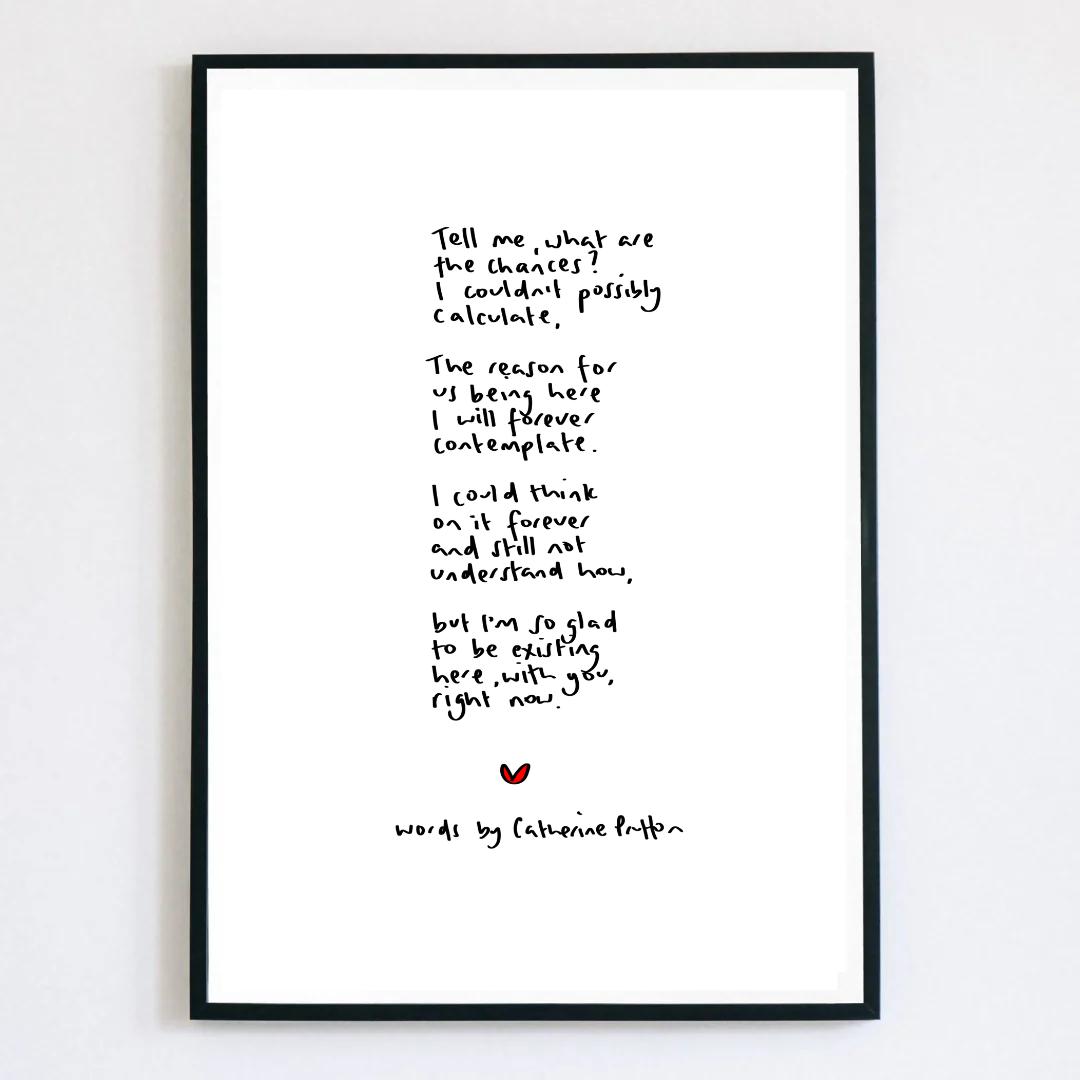 Tell me, what are
the chances?
I couldn't possibly
calculate,
The reason for
us being here
I will forever
contemplate.
I could think
on it forever
and still not
understand how,
but I'm so glad
to be existing
here, with you,
right now.
words by Catherine Prutton